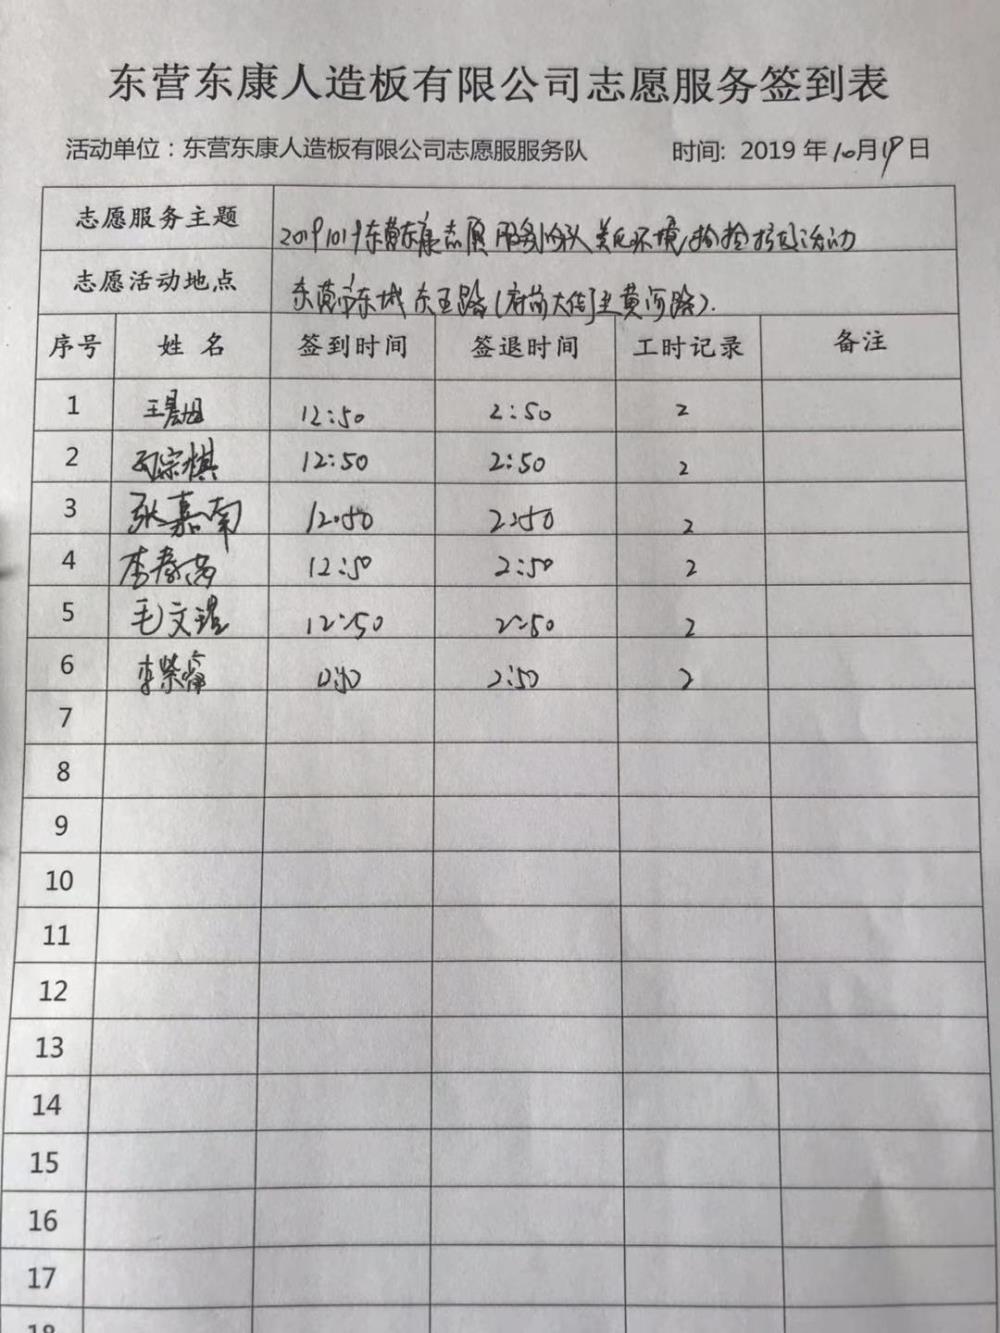 东营东康人造板有限公司志愿服务签到表
活动单位：东营东康人造板有限公司志愿服服务队 时间: 2019 年10月19日
志愿服务主题 20191019东营东康志愿服务队关爱环境,捡捡垃圾活动
志愿活动地点 东营市东城东五路(府前大街至黄河路).
序号 姓 名 签到时间 签退时间 工时记录 备注
1 王晨旭 12:50 2:50 2
2 宗棋 12:50 2:50 2
3 张嘉南 12:50 2:50 2
4 李春芮 12:50 2:50 2
5 毛文 12:50 2:50 2
6 李 2:50 2
7
8
9
10
11
12
13
14
15
16
17
18